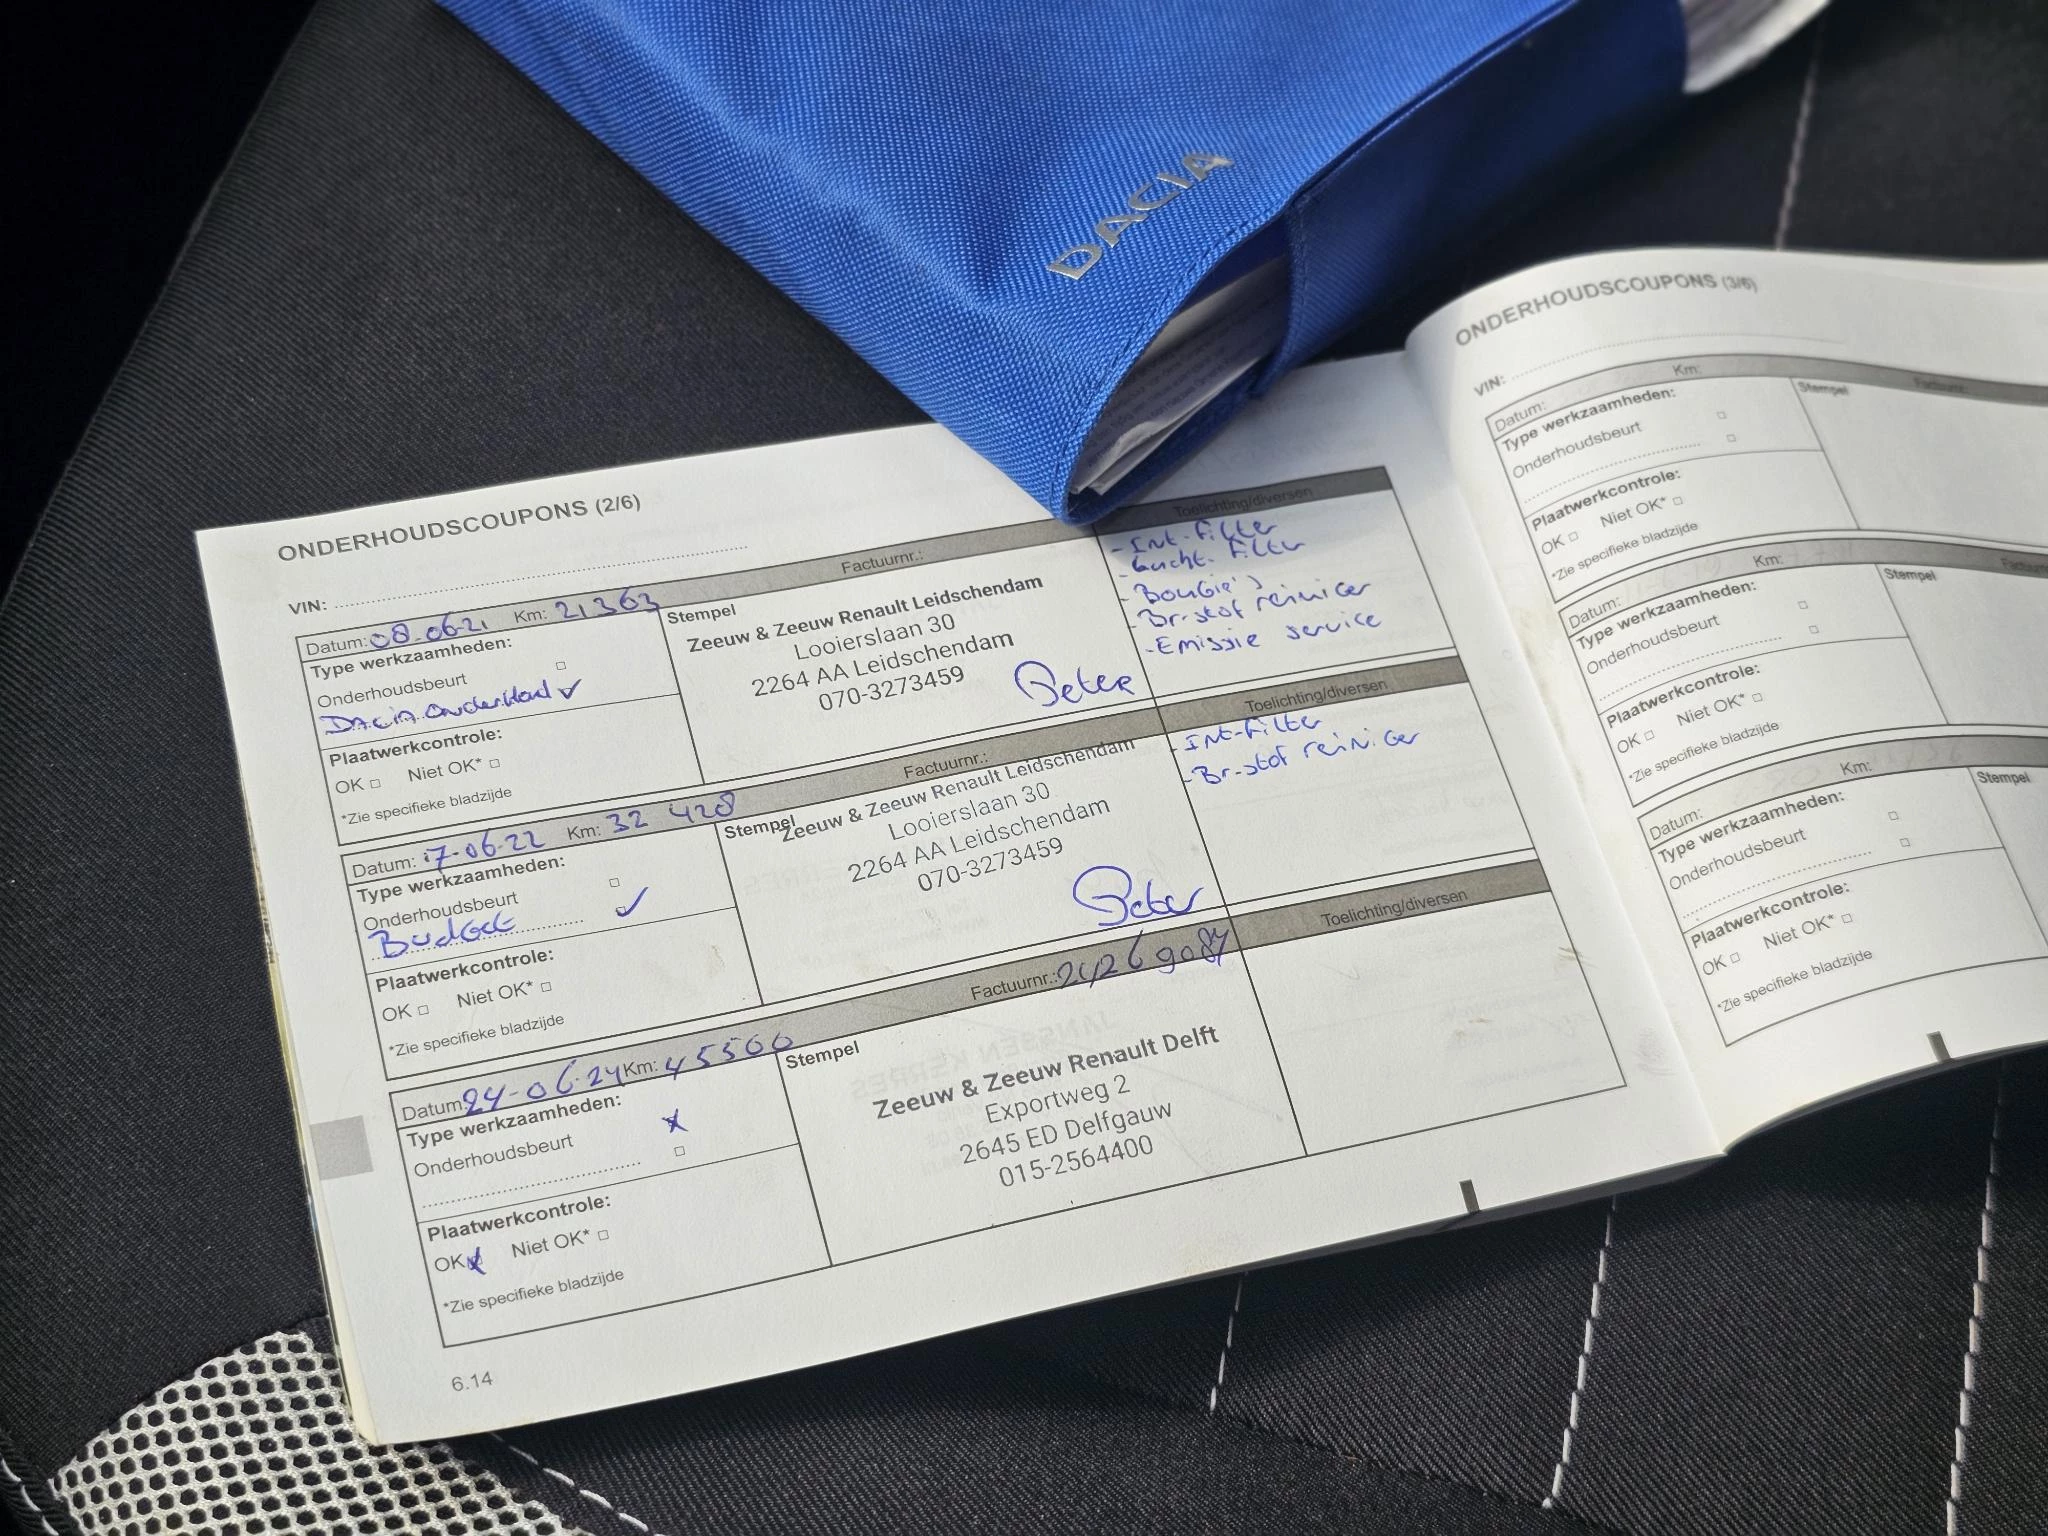 DACIA
ONDERHOUDSCOUPONS (2/6)
VIN:
Datum: 08-06-21 Km: 21363 Factuurnr.: Toelichting/diversen
Type werkzaamheden:
Onderhoudsbeurt
Dacia onderhoud
Plaatwerkcontrole:
OK Niet OK*
*Zie specifieke bladzijde
Stempel
Zeeuw & Zeeuw Renault Leidschendam
Looierslaan 30
2264 AA Leidschendam
070-3273459
Peter
- Int-filter
- Lucht-filter
- Bougie's
- Br-stof reiniger
- Emissie service
Datum: 17-06-22 Km: 32 428 Factuurnr.: Toelichting/diversen
Type werkzaamheden:
Onderhoudsbeurt
Budget
Plaatwerkcontrole:
OK Niet OK*
*Zie specifieke bladzijde
Stempel
Zeeuw & Zeeuw Renault Leidschendam
Looierslaan 30
2264 AA Leidschendam
070-3273459
Peter
- Int-filter
- Br-stof reiniger
Datum: 24-06-24 Km: 45500 Factuurnr.: Toelichting/diversen
Type werkzaamheden:
Onderhoudsbeurt
Plaatwerkcontrole:
OK Niet OK*
*Zie specifieke bladzijde
Stempel
Zeeuw & Zeeuw Renault Delft
Exportweg 2
2645 ED Delfgauw
015-2564400
6.14
ONDERHOUDSCOUPONS (3/6)
VIN:
Datum: Km: Factuurnr.
Type werkzaamheden:
Onderhoudsbeurt
Plaatwerkcontrole:
OK Niet OK*
*Zie specifieke bladzijde
Stempel
Datum: Km:
Type werkzaamheden:
Onderhoudsbeurt
Plaatwerkcontrole:
OK Niet OK*
*Zie specifieke bladzijde
Stempel
Datum: Km:
Type werkzaamheden:
Onderhoudsbeurt
Plaatwerkcontrole:
OK Niet OK*
*Zie specifieke bladzijde
Stempel